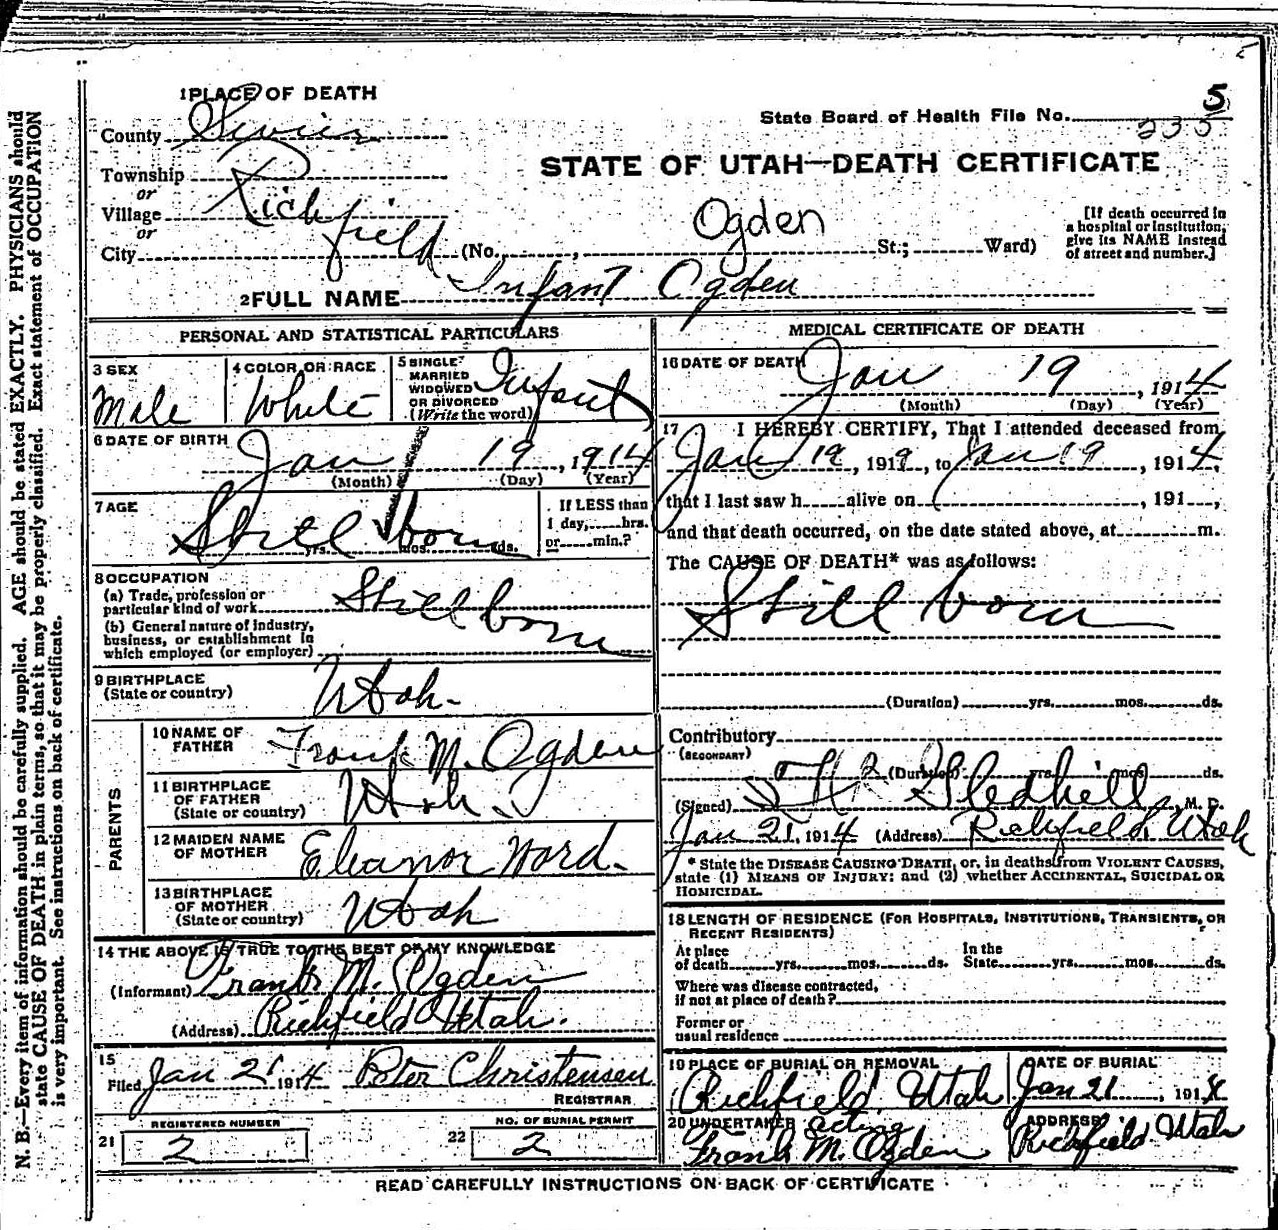 1 PLACE OF DEATH
County Sevier
Township
or
Village Richfield
or
City (No. , St.; Ward)
State Board of Health File No. 5
235
STATE OF UTAH—DEATH CERTIFICATE
Ogden
[If death occurred in
a hospital or institution,
give its NAME instead
of street and number.]
2 FULL NAME Infant Ogden
PERSONAL AND STATISTICAL PARTICULARS
3 SEX
Male
4 COLOR OR RACE
White
5 SINGLE
MARRIED
WIDOWED
OR DIVORCED
(Write the word)
Infant
6 DATE OF BIRTH
Jan 19, 1914
(Month) (Day) (Year)
7 AGE
Still born
yrs. mos. ds.
If LESS than
1 day, hrs.
or min.?
8 OCCUPATION
(a) Trade, profession or
particular kind of work
(b) General nature of industry,
business, or establishment in
which employed (or employer)
Stillborn
9 BIRTHPLACE
(State or country)
Utah
PARENTS
10 NAME OF
FATHER
Frank M. Ogden
11 BIRTHPLACE
OF FATHER
(State or country)
Utah
12 MAIDEN NAME
OF MOTHER
Eleanor Word
13 BIRTHPLACE
OF MOTHER
(State or country)
Utah
14 THE ABOVE IS TRUE TO THE BEST OF MY KNOWLEDGE
(Informant) Frank M. Ogden
(Address) Richfield Utah.
15
Filed Jan 21 1914 Peter Christensen
REGISTRAR
REGISTERED NUMBER
21 2
NO. OF BURIAL PERMIT
22 2
MEDICAL CERTIFICATE OF DEATH
16 DATE OF DEATH
Jan 19, 1914
(Month) (Day) (Year)
17 I HEREBY CERTIFY, That I attended deceased from
Jan 19, 1919, to Jan 19, 1914,
that I last saw h alive on , 191 ,
and that death occurred, on the date stated above, at m.
The CAUSE OF DEATH* was as follows:
Still born
(Duration) yrs. mos. ds.
Contributory
(SECONDARY)
(Duration) yrs. mos. ds.
(Signed) Gledhill, M. D.
Jan 21, 1914 (Address) Richfield, Utah
* State the DISEASE CAUSING DEATH, or, in deaths from VIOLENT CAUSES,
state (1) MEANS OF INJURY: and (2) whether ACCIDENTAL, SUICIDAL OR
HOMICIDAL.
18 LENGTH OF RESIDENCE (FOR HOSPITALS, INSTITUTIONS, TRANSIENTS, OR
RECENT RESIDENTS)
At place
of death yrs. mos. ds.
In the
State yrs. mos. ds.
Where was disease contracted,
if not at place of death?
Former or
usual residence
19 PLACE OF BURIAL OR REMOVAL
Richfield, Utah
DATE OF BURIAL
Jan 21, 1914
20 UNDERTAKER acting
Frank M. Ogden
ADDRESS
Richfield Utah
READ CAREFULLY INSTRUCTIONS ON BACK OF CERTIFICATE
N. B.—Every item of information should be carefully supplied. AGE should be stated EXACTLY. PHYSICIANS should
state CAUSE OF DEATH in plain terms, so that it may be properly classified. Exact statement of OCCUPATION
is very important. See instructions on back of certificate.